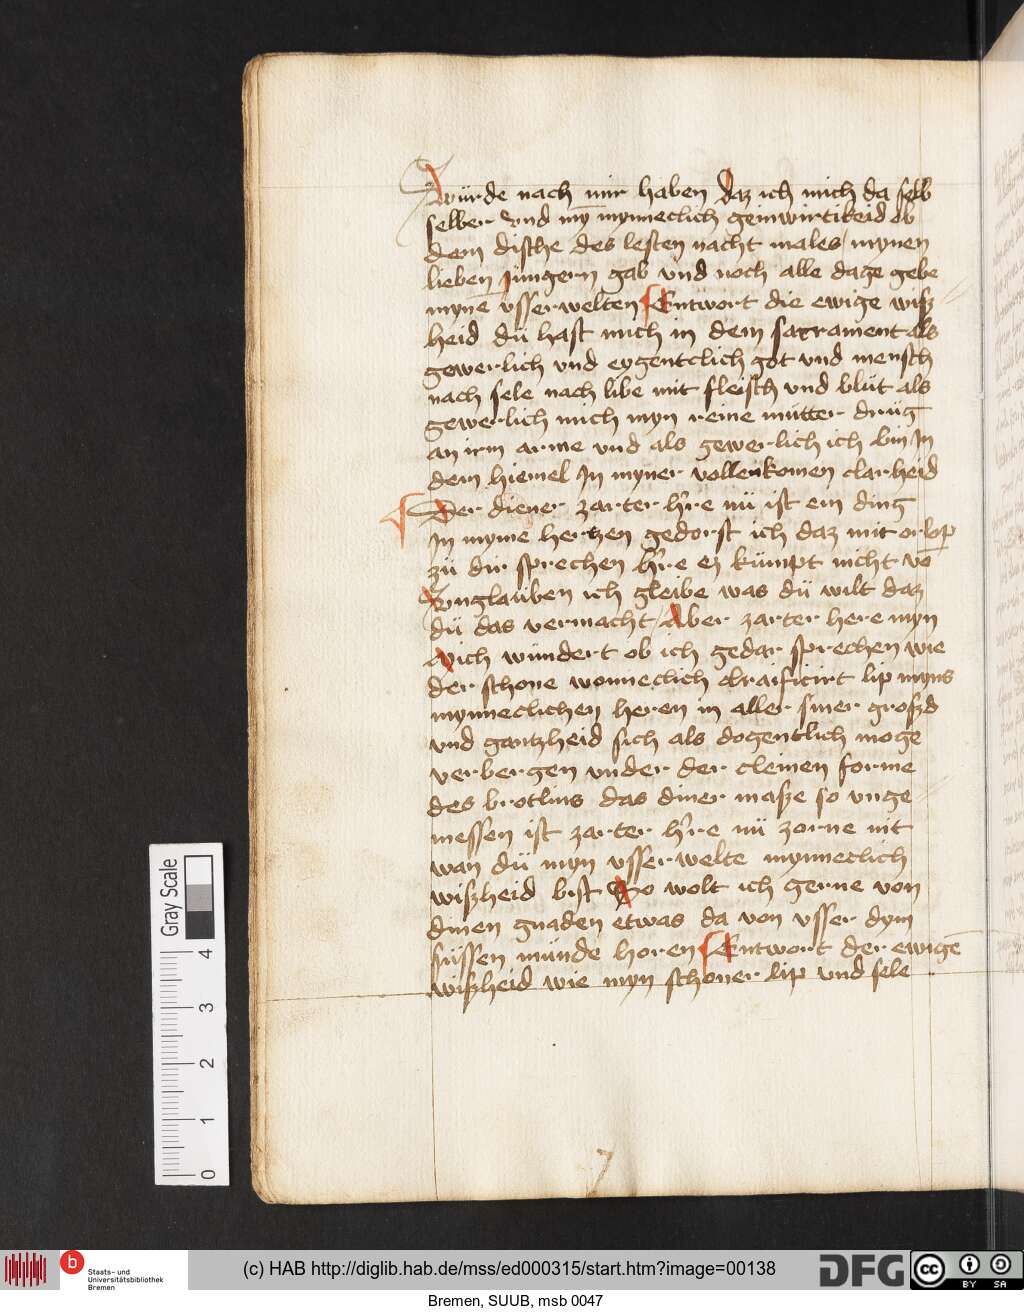 würde nach mir haben daz ich mich da selb
selber vnd my̅ mynneclich geinwirtikeid ob
dem dische des lesten nacht males / mynen
lieben jüngern gab vnd noch alle dage gebe
myne̅ vsserwelten Entwort die ewige wisz
heid dü hast mich in dem sacrament als
gewerlich vnd eygentclich got vnd mensch
nach sele nach libe mit fleisch vnd blüt als
gewerlich mich myn reine mütter drüg
an irm arme vnd als gewerlich ich bin In
dem hiemel In myner vollenkomen clarheid
Der diener zarter h're nü ist ein ding
In myme hertzen gedorst ich daz mit orlop
zü dir sprechen h're ez kümpt nicht vo̅
vnglauben ich gleibe was dü wilt daz
dü das vermacht Aber zarter here myn
Mich wündert ob ich gedar sprechen wie
der schone wonneclich clraificirt lip myns
mynneclichen heren in aller siner groszd
vnd gantzheid sich als dogentlich moge
verbergen vnder der cleinen forme
des brotlins das diner masze so vnge
messen ist zarter h're nü zorne nit
wan dü myn vsserwelte mynneclich
wiszheid bist So wolt ich gerne von
dinen gnaden etwas da von vsser dym
süssen münde horen Entwort der ewige
wiszheid wie myn schoner lip vnd sele
Gray Scale
4
3
2
1
0
b
Staats- und
Universitätsbibliothek
Bremen
(c) HAB http://diglib.hab.de/mss/ed000315/start.htm?image=00138
DFG
cc
BY SA
Bremen, SUUB, msb 0047